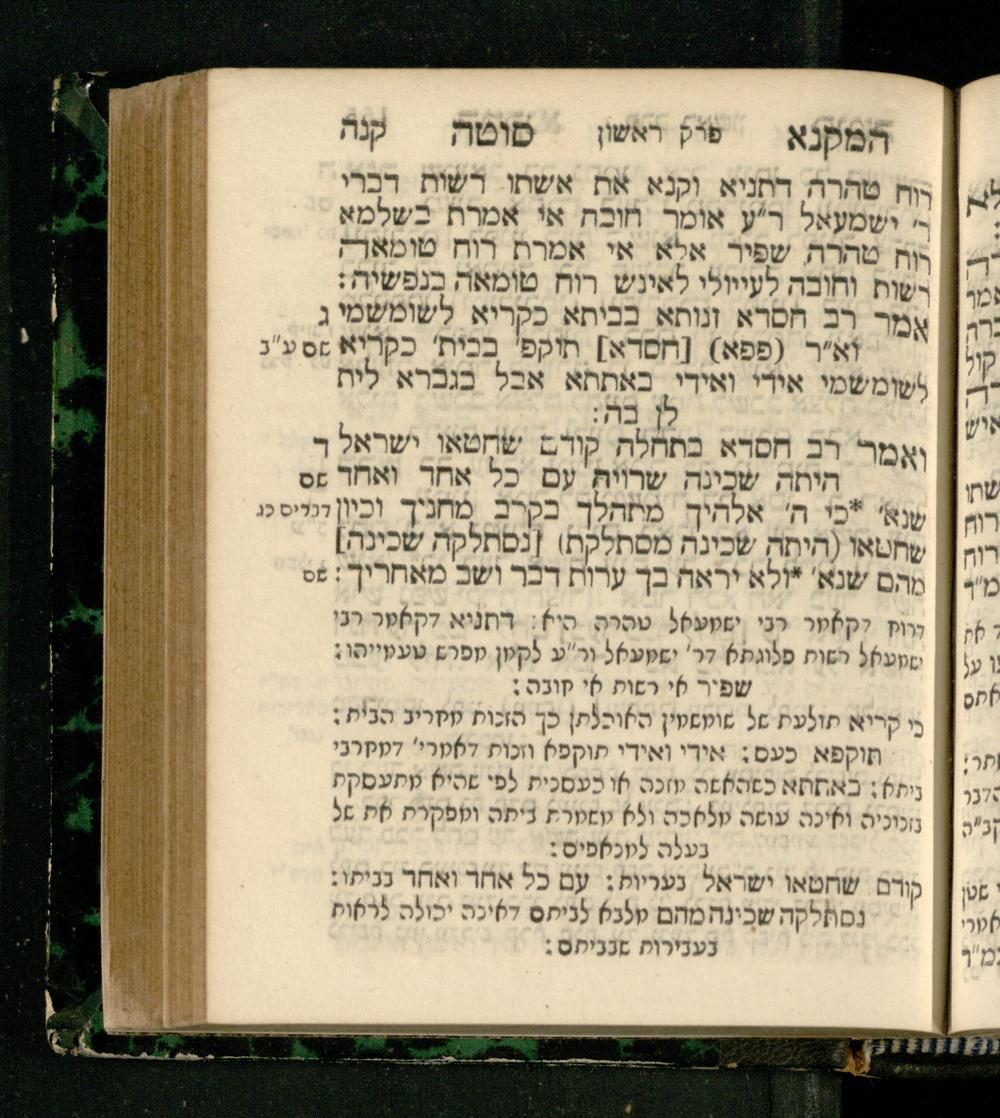 המקנא פרק ראשון סוטה קנה
רוח טהרה דתניא וקנא את אשתו רשות דברי
ר' ישמעאל ר"ע אומר חובה אי אמרת בשלמא
רוח טהרה שפיר אלא אי אמרת רוח טומאה
רשות וחובה לעייולי לאינש רוח טומאה בנפשיה:
אמר רב חסדא זנותא בביתא כקריא לשומשמי ג
וא"ר (פפא) [חסדא] תוקפ' בבית' כקריא שם ע"ב
לשומשמי אידי ואידי באתתא אבל בגברא לית
לן בה:
ואמר רב חסדא בתחלה קודם שחטאו ישראל ד
היתה שכינה שרויה עם כל אחד ואחד שם
שנא' *כי ה' אלהיך מתהלך בקרב מחניך וכיון דברים כג
שחטאו (היתה שכינה מסתלקת) [נסתלקה שכינה]
מהם שנא' *ולא יראה בך ערות דבר ושב מאחריך: שם
דרוח דקאמר רבי ישמעאל טהרה היא: דתניא דקאמר רבי
ישמעאל רשות פלוגתא דר' ישמעאל ור"ע לקמן מפרש טעמייהו:
שפיר אי רשות אי חובה:
כי קריא תולעת של שומשמין האוכלתן כך הזנות מחריב הבית:
תוקפא כעס: אידי ואידי תוקפא וזנות דאמרי' דמחרבי
ביתא: באתתא כשהאשה מזנה או כעסנית לפי שהיא מתעסקת
בזנוניה ואינה עושה מלאכה ולא משמרת ביתה ומפקרת את של
בעלה למנאפים:
קודם שחטאו ישראל בעריות: עם כל אחד ואחד בביתו:
נסתלקה שכינה מהם מלבא לביתם דאינה יכולה לראות
בעבירות שבביתם: